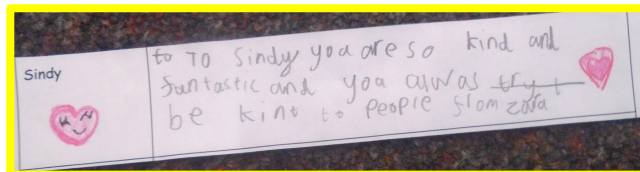 Sindy
to To Sindy you are so kind and
funtastic and you alwas try t
be kint to people from zara